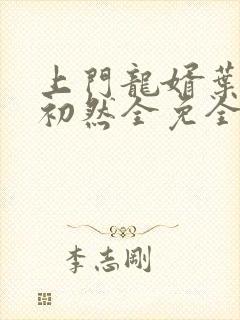 上門龍婿葉
初然全免全
李志剛